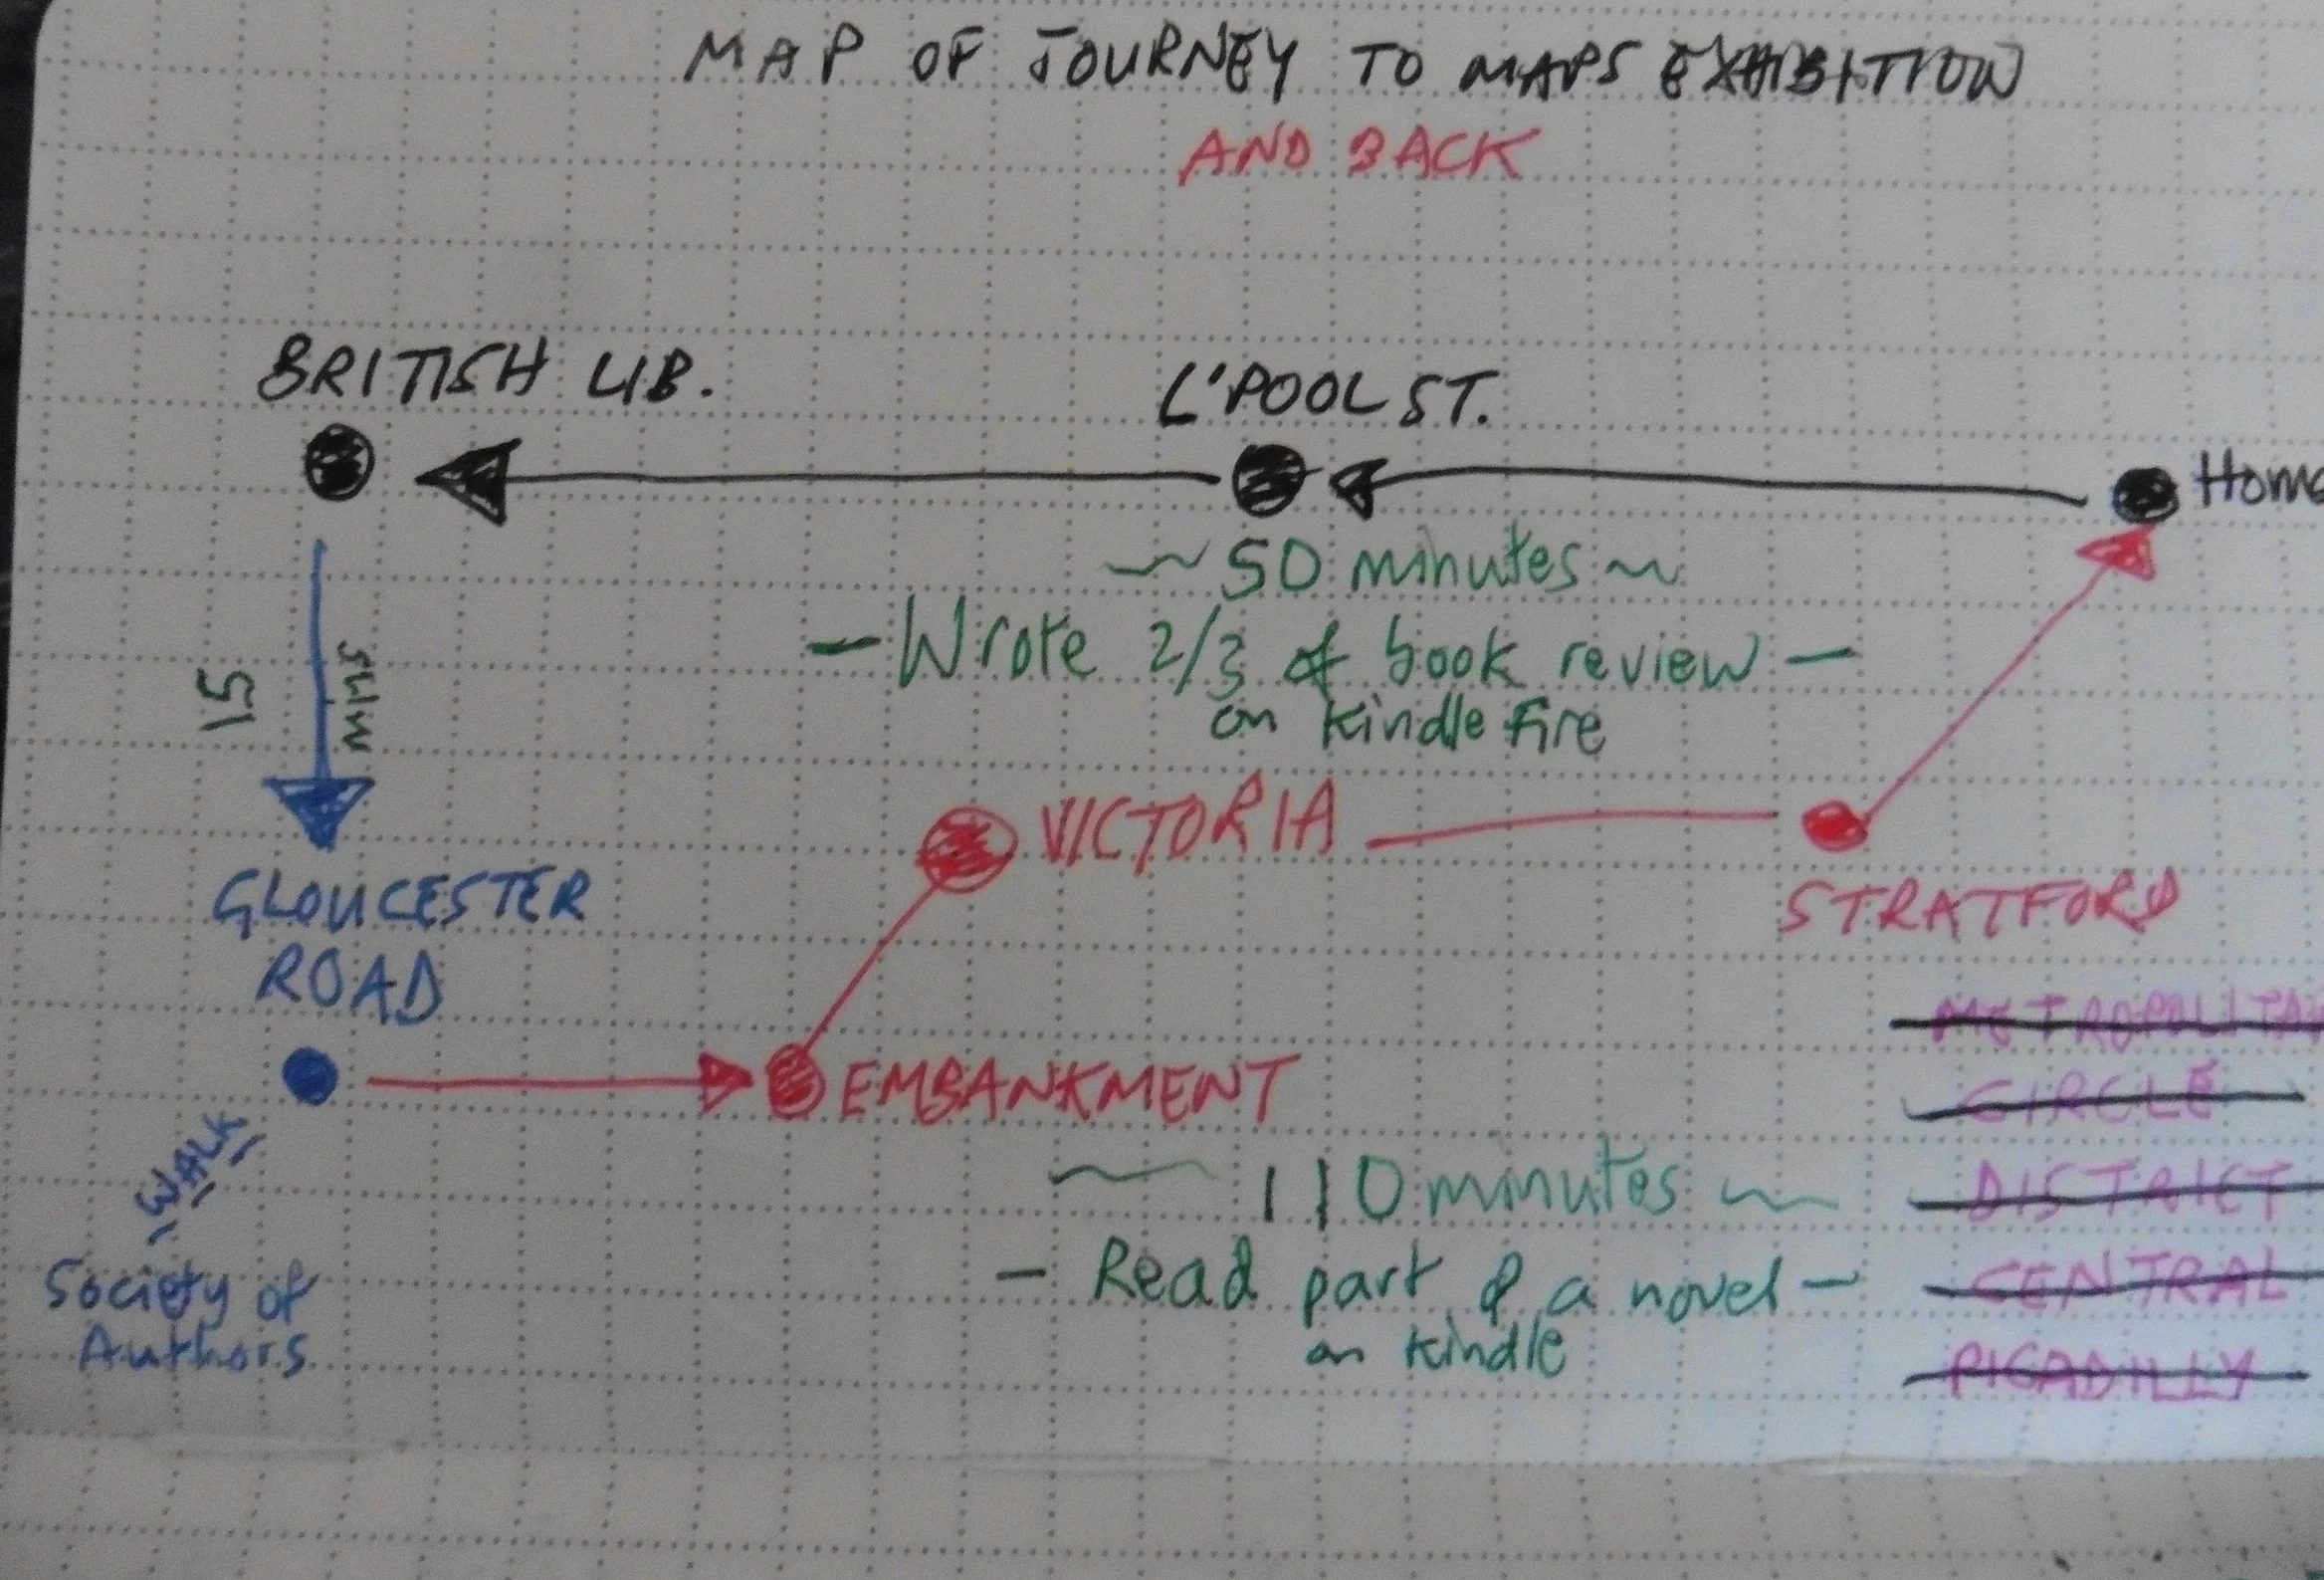 MAP OF JOURNEY TO MAPS EXHIBITION
AND BACK
BRITISH LIB.
L'POOL ST.
Home
~ 50 minutes ~
- Wrote 2/3 of book review -
on Kindle Fire
15
MINS
GLOUCESTER
ROAD
VICTORIA
STRATFORD
EMBANKMENT
WALK
Society of
Authors
~ 110 minutes ~
- Read part of a novel -
on Kindle
METROPOLITA
CIRCLE
DISTRICT
CENTRAL
PICADILLY